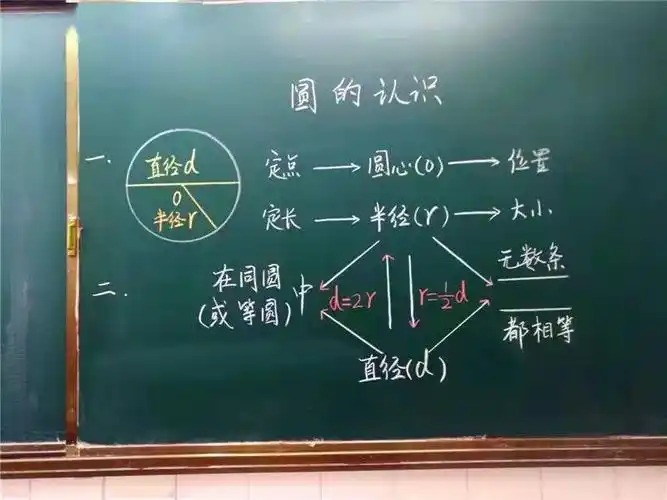 圆的认识
一.
直径d
O
半径r
定点 → 圆心(O) → 位置
定长 → 半径(r) → 大小
二.
在同圆
(或等圆)中
d=2r
r=½d
无数条
都相等
直径(d)